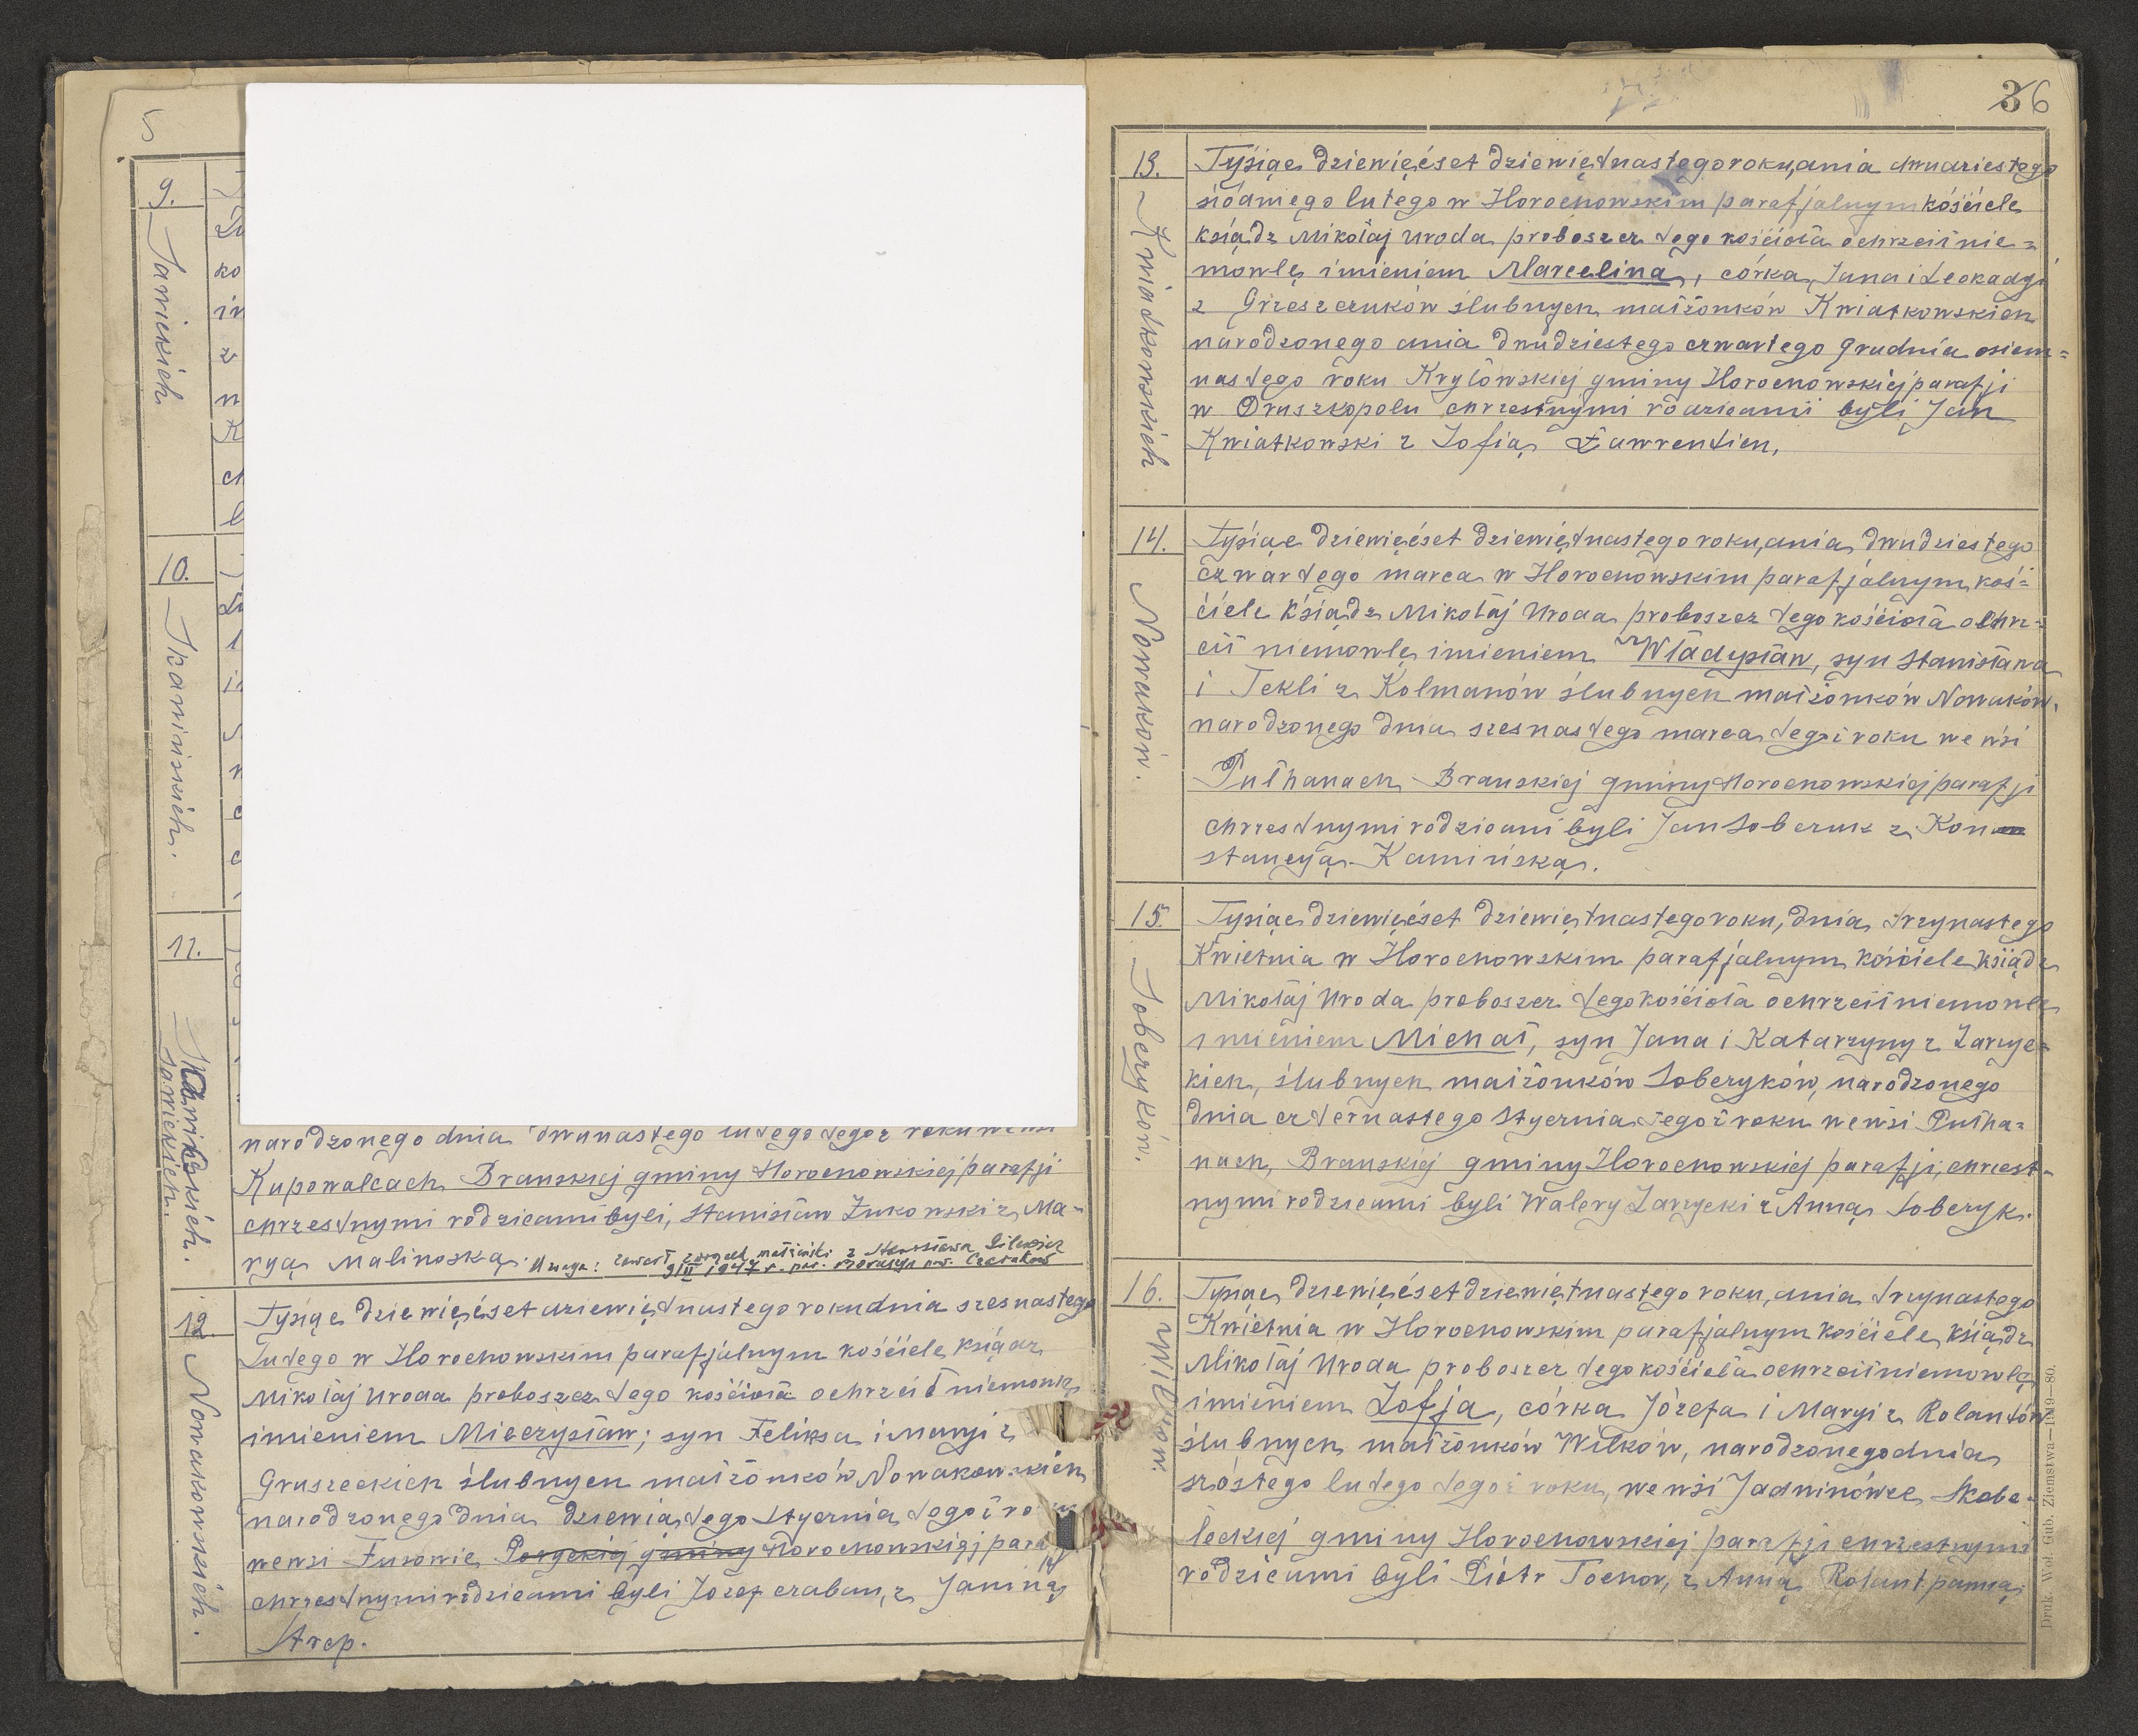 5
9.
Janickich
Lu
ko
in
z
n
K
ch
b
10.
Kaminiskich.
11.
Janickich.
narodzonego dnia dwunastego lutego tegoż roku wewsi
Kupowalcach Branskiej gminy Horochowskiej parafji
chrzestnymi rodzicami byli, Stanisław Żukowski z Ma-
ryą Malinoską. Uwaga: zawarł związek małżeński z Stanisława
9/II 1947 r. par.
12.
Nowakowskich.
Tysiąc dziewięćset dziewiętnastego roku dnia szesnastego
Lutego w Horochowskim parafjalnym kościele ksiądz
Mikołaj Uroda proboszcz tego kościoła ochrzcił niemowlę
imieniem Mieczysław; syn Feliksa i Maryi z
Gruszeckich ślubnych małżonków Nowakowskich
narodzonego dnia dziewiątego Stycznia tegoż ro
wewsi Fusowie Poryckiej gminy Horochowskiej para
chrzestnymi rodzicami byli Józef Czaban, z Janiną
Strep.
36
13.
Kwiatkowskich
Tysiąc dziewięćset dziewiętnastego roku, dnia dwudziestego
siódmego lutego w Horochowskim parafjalnym kościele
ksiądz Mikołaj Uroda proboszcz tego kościoła ochrzcił nie=
mowlę imieniem Marcelina, córka Jana i Leokadyi
z Grzeszczuków ślubnych małżonków Kwiatkowskich
narodzonego dnia dwudziestego czwartego Grudnia osiem=
nastego roku Kryłowskiej gminy Horochowskiej parafji
w Druszkopolu chrzestnymi rodzicami byli Jan
Kwiatkowski z Zofią Ławrentien,
14.
Nowaków.
Tysiąc dziewięćset dziewiętnastego roku, dnia dwudziestego
czwartego marca w Horochowskim parafjalnym koś=
ciele Ksiądz Mikołaj Uroda proboszcz tego kościoła ochrz=
cił niemowlę imieniem Władysław, syn Stanisława
i Tekli z Kolmanów ślubnych małżonków Nowaków.
narodzonego dnia szesnastego marca tegoż roku we wsi
Pułhanach Branskiej gminy Horochowskiej parafji
chrzestnymi rodzicami byli Jan Soberuk z Kon
stancyą Kamińską.
15.
Soberyków.
Tysiąc dziewięćset dziewiętnastego roku, dnia trzynastego
Kwietnia w Horochowskim parafjalnym kościele ksiądz
Mikołaj Uroda proboszcz tego kościoła ochrzcił niemowlę
imieniem Michał, syn Jana i Katarzyny z Zarzyc=
kich, ślubnych małżonków Soberyków, narodzonego
dnia czternastego Stycznia tegoż roku wewsi Pułha=
nach, Branskiej gminy Horochowskiej parafji, chrzest-
nymi rodzicami byli Walery Zarzycki z Anną Soberyk.
16.
Wilków.
Tysiąc dziewięćset dziewiętnastego roku, dnia trzynastego
Kwietnia w Horochowskim parafjalnym kościele, ksiądz
Mikołaj Uroda proboszcz tego kościoła ochrzcił niemowlę
imieniem Zofja, córka Józefa i Maryi z Rolantów
ślubnych małżonków Wilków, narodzonego dnia
szóstego lutego tegoż roku, we wsi Jadwinówce Skobe-
leckiej gminy Horochowskiej parafji chrzestnymi
rodzicami byli Piotr Tochor, z Anną Rolant panną.
Druk. Woł. Gub. Ziemstwa—1919—80.